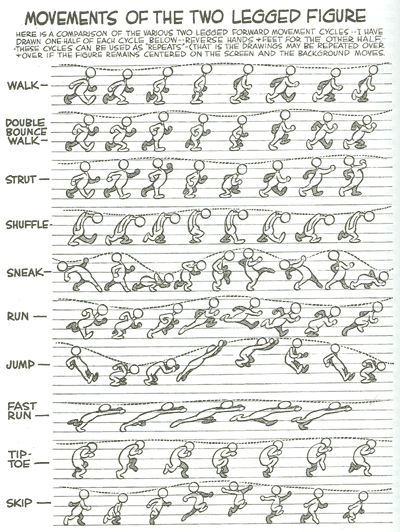 MOVEMENTS OF THE TWO LEGGED FIGURE
HERE IS A COMPARISON OF THE VARIOUS TWO LEGGED FORWARD MOVEMENT CYCLES -- I HAVE
DRAWN ONE HALF OF EACH CYCLE BELOW -- REVERSE HANDS + FEET FOR THE OTHER HALF --
-THESE CYCLES CAN BE USED AS "REPEATS" - (THAT IS THE DRAWINGS MAY BE REPEATED OVER
+ OVER IF THE FIGURE REMAINS CENTERED ON THE SCREEN AND THE BACKGROUND MOVES.
WALK —
DOUBLE
BOUNCE
WALK —
STRUT —
SHUFFLE -
SNEAK —
RUN —
JUMP —
FAST
RUN —
TIP-
TOE —
SKIP —